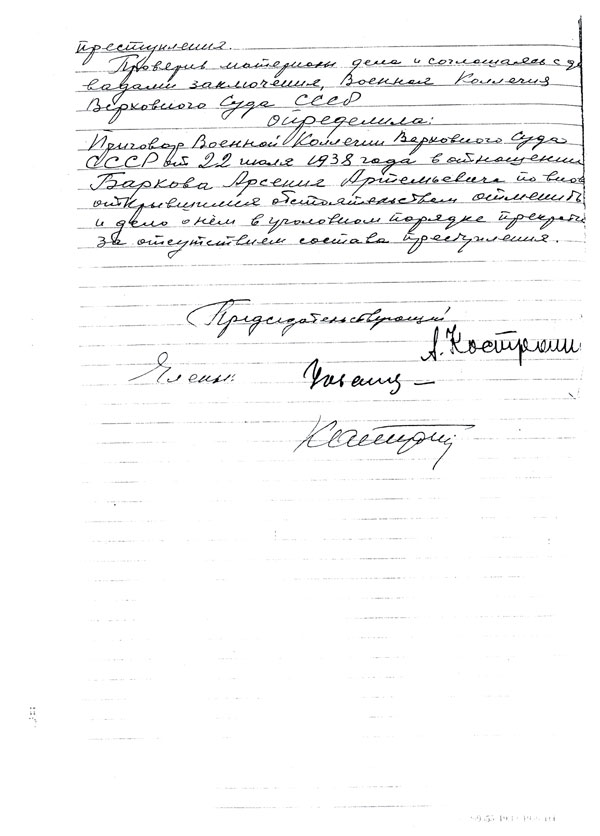 преступления.
Проверив материалы дела и соглашаясь с до
водами заключения, Военная Коллегия
Верховного Суда СССР
определила:
Приговор Военной Коллегии Верховного Суда
СССР от 22 июля 1938 года в отношении
Баркова Арсения Артемьевича по вновь
открывшимся обстоятельствам отменить
и дело о нем в уголовном порядке прекратить
за отсутствием состава преступления.
Председательствующий
А. Костромин
Члены: